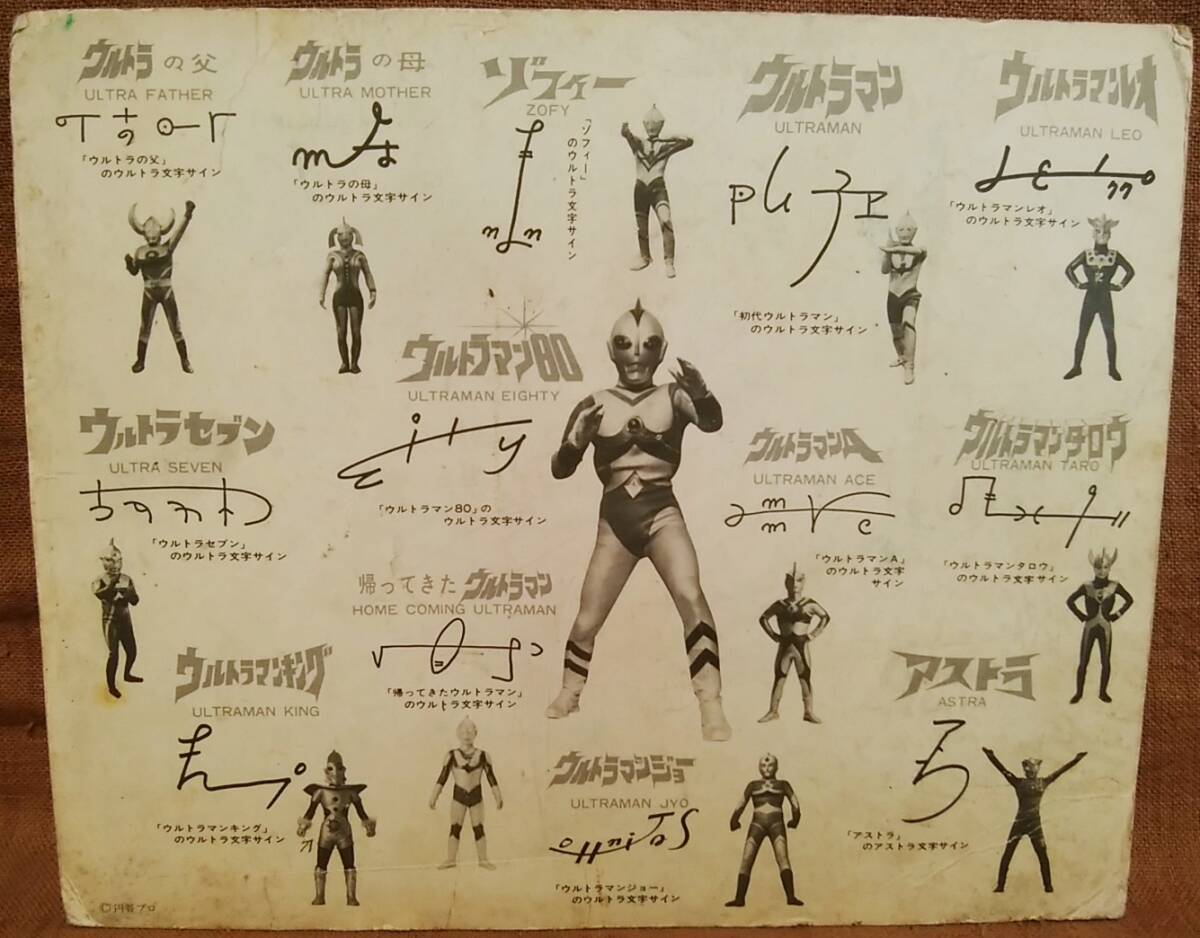 ウルトラの父
ULTRA FATHER
「ウルトラの父」
のウルトラ文字サイン
ウルトラの母
ULTRA MOTHER
「ウルトラの母」
のウルトラ文字サイン
ゾフィー
ZOFY
「ゾフィー」
のウルトラ文字サイン
ウルトラマン
ULTRAMAN
「初代ウルトラマン」
のウルトラ文字サイン
ウルトラマンレオ
ULTRAMAN LEO
「ウルトラマンレオ」
のウルトラ文字サイン
ウルトラマン80
ULTRAMAN EIGHTY
「ウルトラマン80」の
ウルトラ文字サイン
ウルトラセブン
ULTRA SEVEN
「ウルトラセブン」
のウルトラ文字サイン
ウルトラマンA
ULTRAMAN ACE
「ウルトラマンA」
のウルトラ文字
サイン
ウルトラマンタロウ
ULTRAMAN TARO
「ウルトラマンタロウ」
のウルトラ文字サイン
帰ってきたウルトラマン
HOME COMING ULTRAMAN
「帰ってきたウルトラマン」
のウルトラ文字サイン
ウルトラマンキング
ULTRAMAN KING
「ウルトラマンキング」
のウルトラ文字サイン
ウルトラマンジョー
ULTRAMAN JYO
「ウルトラマンジョー」
のウルトラ文字サイン
アストラ
ASTRA
「アストラ」
のアストラ文字サイン
©円谷プロ